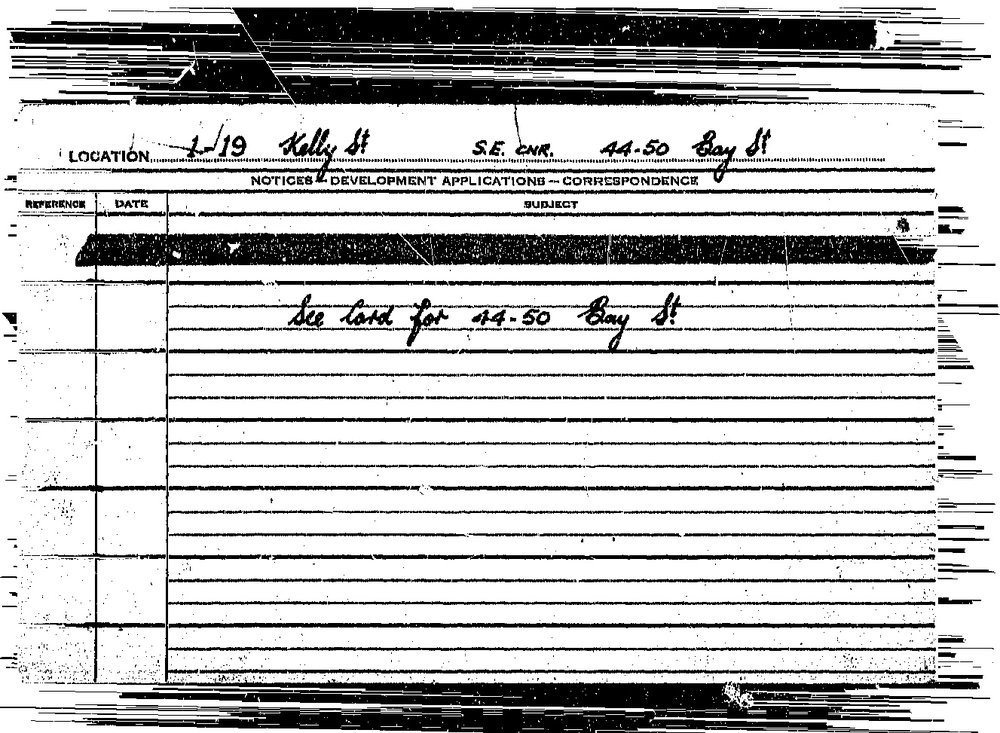 LOCATION 1-19 Kelly St S.E. CNR. 44-50 Bay St
NOTICES - DEVELOPMENT APPLICATIONS - CORRESPONDENCE
REFERENCE DATE SUBJECT
See Card for 44-50 Bay St